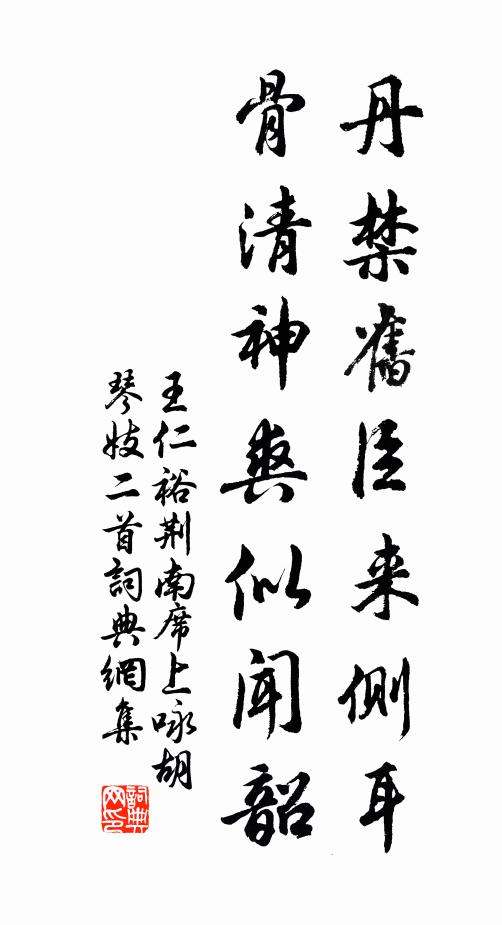 丹禁舊臣来側耳
骨清神爽似闻韶
王仁裕荆南席上咏胡
琴妓二首詞典網集
詞典网印